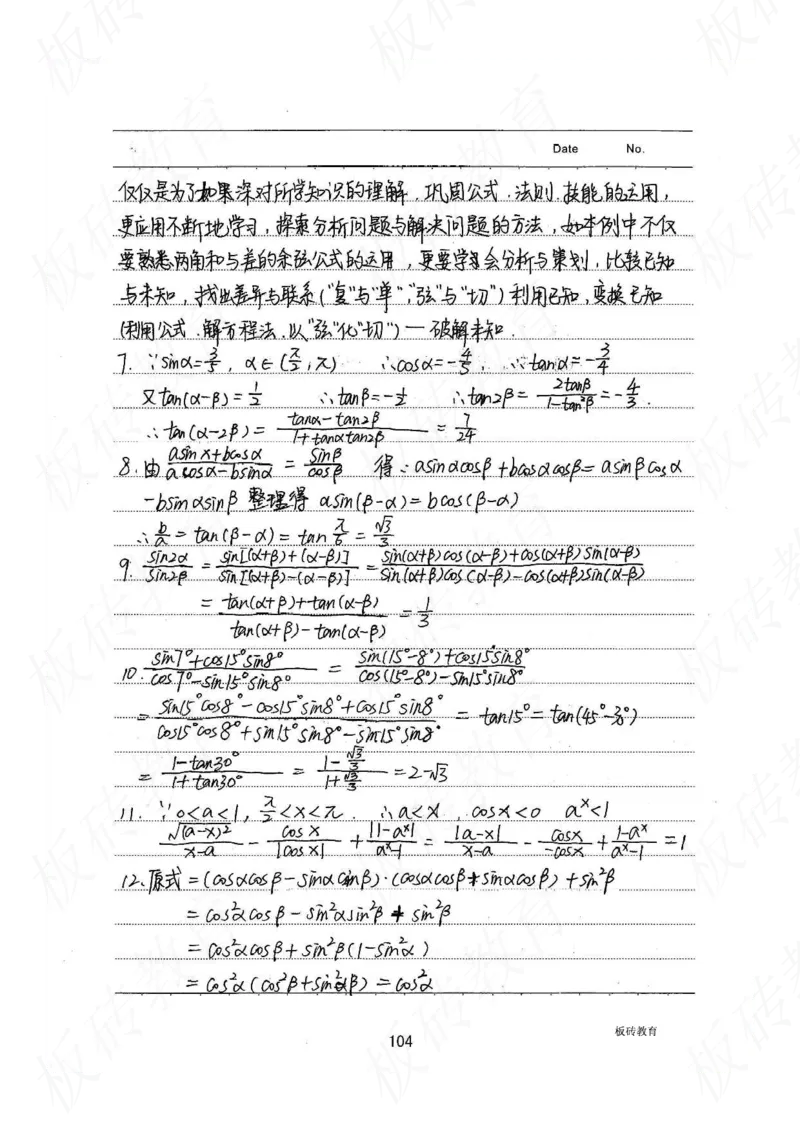 Date No.
仅仅是为了加深对所学知识的理解，巩固公式、法则、技能的运用，
更应用不断地学习，探索分析问题与解决问题的方法，如本例中不仅
要熟悉两角和与差的余弦公式的运用，更要学会分析与策划，比较已知
与未知，找出差异与联系（“复”与“单”，“弦”与“切”）利用已知，变换已知
（利用公式、解方程法、以“弦”化“切”）— 破解未知．
7. ∵sinα=3/5，α∈(π/2，π) ∴cosα=-4/5，∴tanα=-3/4
又tan(α-β)=1/2 ∴tanβ=-1/2 ∴tan2β=2tanβ/(1-tan²β)=-4/3．
∴tan(α-2β)=(tanα-tan2β)/(1+tanαtan2β)=7/24
8. 由(asinx+bcosα)/(acosα-bsinα)=sinβ/cosβ 得：asinαcosβ+bcosαcosβ=asinβcosα
-bsinαsinβ 整理得 asin(β-α)=bcos(β-α)
∴b/a=tan(β-α)=tanπ/6=√3/3
9. sin2α/sin2β=sin[(α+β)+(α-β)]/sin[(α+β)-(α-β)]=(sin(α+β)cos(α-β)+cos(α+β)sin(α-β))/(sin(α+β)cos(α-β)-cos(α+β)sin(α-β))
=(tan(α+β)+tan(α-β))/(tan(α+β)-tan(α-β))=1/3
10. (sin7°+cos15°sin8°)/(cos7°-sin15°sin8°)=(sin(15°-8°)+cos15°sin8°)/(cos(15°-8°)-sin15°sin8°)
=(sin15°cos8°-cos15°sin8°+cos15°sin8°)/(cos15°cos8°+sin15°sin8°-sin15°sin8°)=tan15°=tan(45°-30°)
=(1-tan30°)/(1+tan30°)=(1-√3/3)/(1+√3/3)=2-√3
11. ∵0<a<1，π/2<x<π．∴a<x，cosx<0 aˣ<1
√(a-x)²/(x-a)-cosx/|cosx|+|1-aˣ|/(aˣ-1)=|a-x|/(x-a)-cosx/(-cosx)+(1-aˣ)/(aˣ-1)=1
12. 原式=(cosαcosβ-sinαsinβ)·(cosαcosβ+sinαcosβ)+sin²β
=cos²αcosβ-sin²αsin²β+sin²β
=cos²αcosβ+sin²β(1-sin²α)
=cos²α(cos²β+sin²β)=cos²α
板砖教育
104